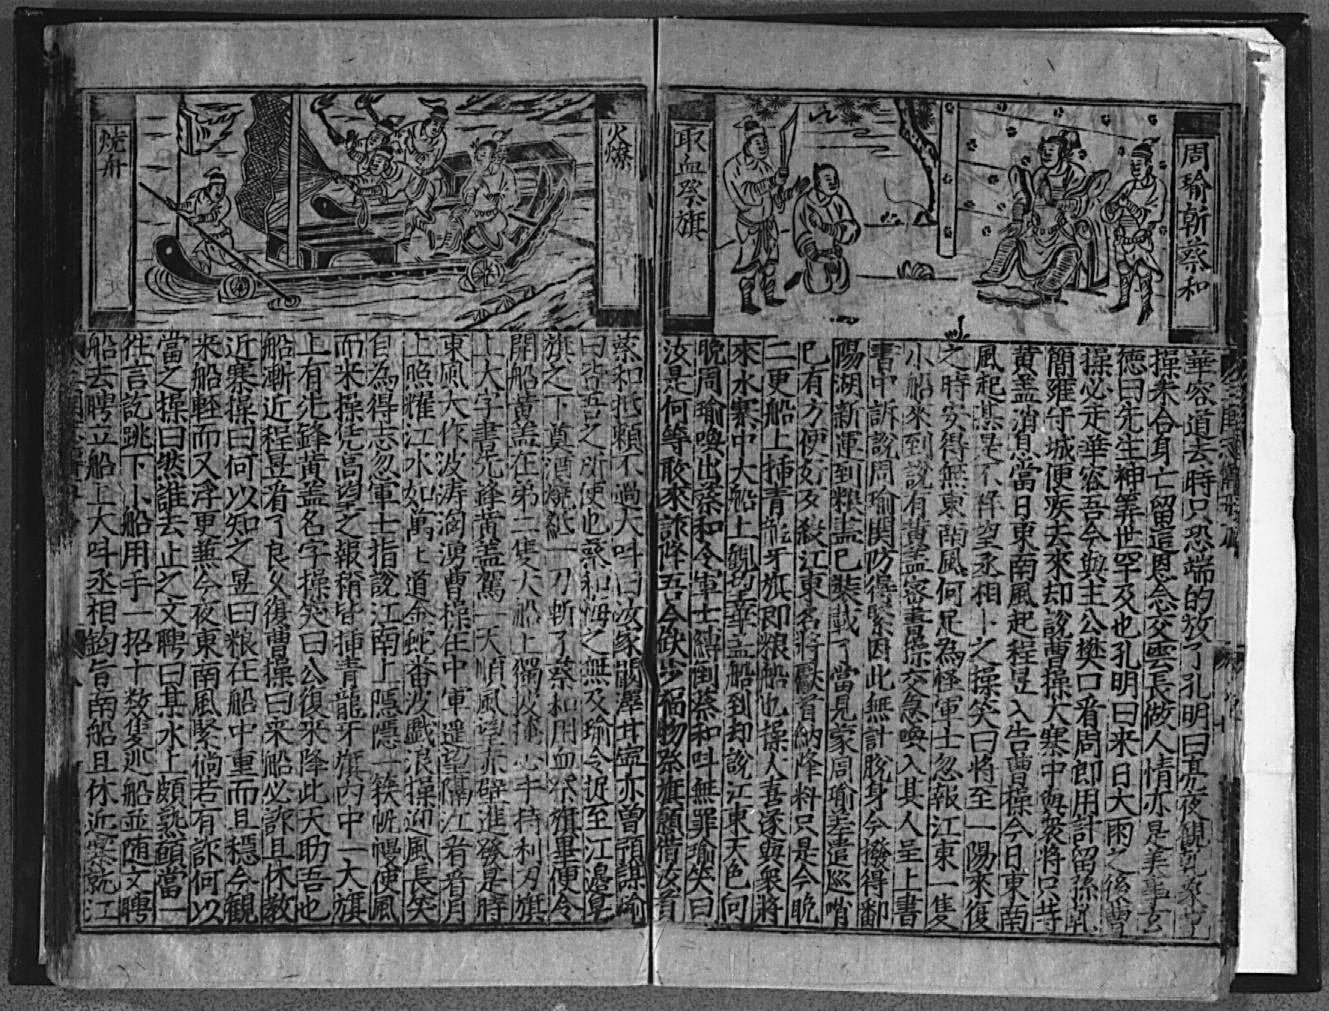 周瑜斬蔡和
取血祭旗
華容道去時只恐端的放了孔明曰亮夜觀乾象曹
操未合身亡留這恩念交雲長做人情亦是美事玄
德曰先生神筭世罕及也孔明曰來日大雨之後曹
操必走華容吾今與主公樊口看周郎用計留孫乾
簡雍守城便疾去來却說曹操大寨中與衆將只等
黃盖消息當日東南風起程昱入告曹操今日東南
風起甚是不祥望丞相之操笑曰將至一陽來復
之時安得無東南風何足為怪軍士忽報江東一隻
小船來到說有黃盖密書操交急喚入其人呈上書
書中訴說周瑜関防得緊因此無計脫身今撥得鄱
陽湖新運到粮盖已裝載了當見家周瑜差遣巡哨
已有方便好歹殺江東名將獻首納降料只是今晚
二更船上揷青龍牙旗即粮船也操大喜遂與衆將
來水寨中大船上觀望黃盖船到却說江東天色向
晚周瑜喚出蔡和令軍士縛倒蔡和呌無罪瑜笑曰
汝是何等敢來詐降吾今缺少福物祭旗願借汝首
火燎
燒舟
蔡和抵賴不過大呌曰汝家闞澤甘寧亦曾預謀瑜
曰皆吾之所使也蔡和悔之無及瑜令捉至江邊皂
旗之下奠酒燒紙一刀斬了蔡和用血祭旗畢便令
開船黃盖在第二隻大船上獨披掩心手持利刃旗
上大字書先鋒黃盖駕一天順風望赤壁進發是時
東風大作波涛洶湧曹操在中軍遥望隔江看看月
上照耀江水如萬道金蛇番波戲浪操迎風長笑
自為得志忽軍士指說江南上隱隱一簇帆幔使風
而來操凭高望之報稍皆揷青龍牙旗內中一大旗
上有先鋒黃盖名字操笑曰公復來降此天助吾也
船漸近程昱看了良久復曹操曰來船必詐且休教
近寨操曰何以知之昱曰粮在船中重而且穩今觀
來船軽而又浮更兼今夜東南風緊倘若有詐何以
當之操曰然誰去止之文聘曰某水上頗熟願當一
徃言訖跳下小船用手一招十数隻巡船並随文聘
船去聘立船上大呌丞相鈞旨南船且休近寨就江